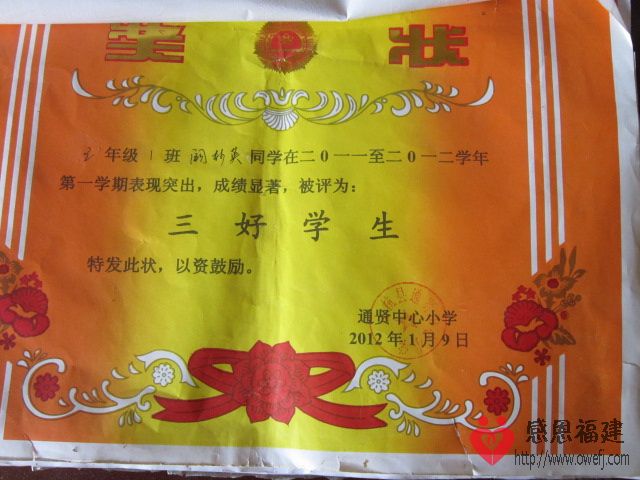 奖状
五年级1班阙彩英同学在二0一一至二0一二学年
第一学期表现突出，成绩显著，被评为：
三好学生
特发此状，以资鼓励。
通贤中心小学
2012年1月9日
感恩福建
http://www.owefj.com